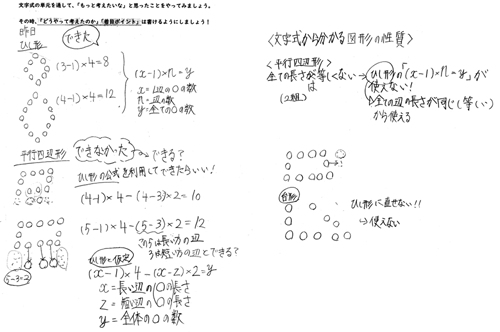 文字式の単元を通して、「もっと考えたいな」と思ったことをやってみましょう。
その時、「どうやって考えたのか」「着目ポイント」は書けるようにしましょう！
昨日
ひし形
できた
(3-1)×4=8
(4-1)×4=12
(x-1)×n=y
x=辺の○の数
n=辺の数
y=全ての○の数
平行四辺形
できなかった
→できる？
ひし形の公式を利用してできたらいい！
(4-1)×4-(4-3)×2=10
(5-1)×4-(5-3)×2=12
この5は長い方の辺
3は短い方の辺とできる？
5-3=2
ひし形と仮定
(x-1)×4-(x-z)×2=y
x=長い辺の○の長さ
z=短い辺の○の長さ
y=全体の○の数
文字式から分かる図形の性質
<平行四辺形>
全ての長さが等しくない→ひし形の「(x-1)×n=y」が
は
使えない！
全ての辺の長さが同じ(等しい)
から使える
台形
ひし形に直せない！！
→使えない